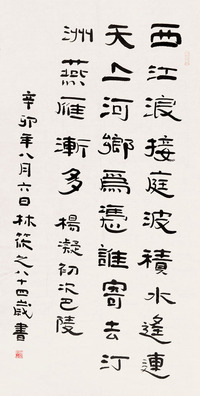 西江浪接庭波積水遙連
天上河鄉爲憑誰寄去汀
洲燕雁漸多 楊凝初次巴陵
辛卯年八月六日林筱之八十四歲書